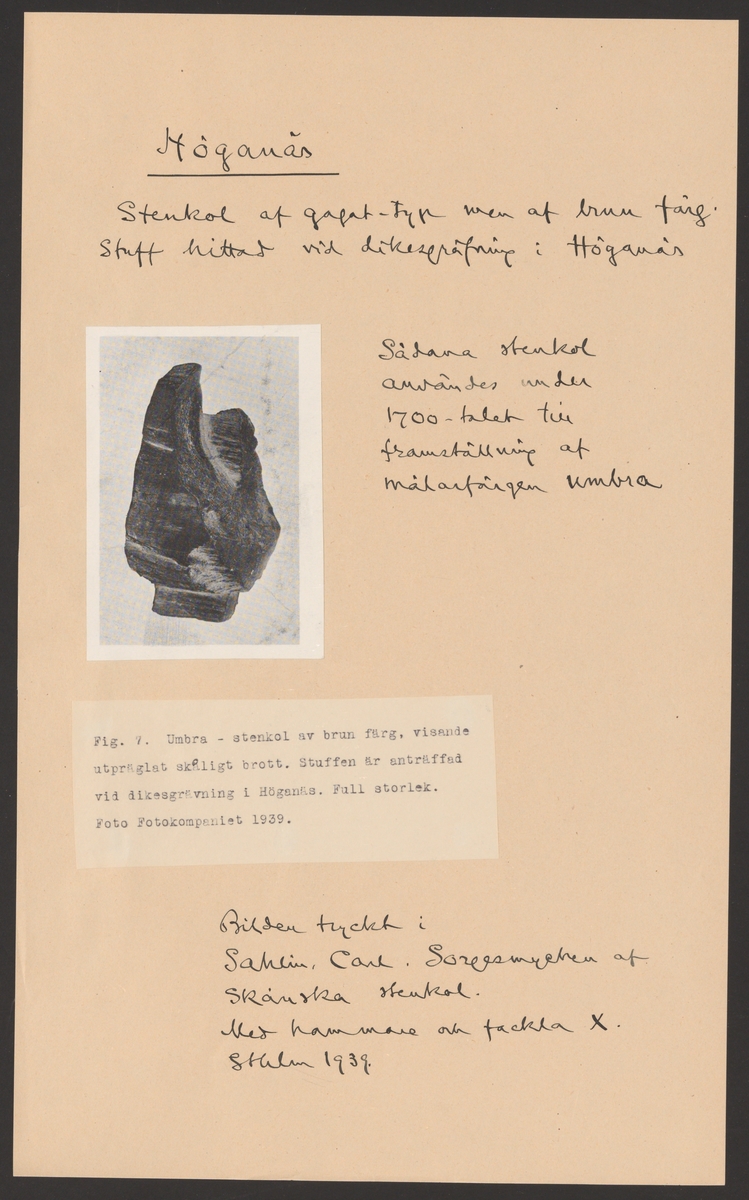 Höganäs
Stenkol af gagat-typ men af brun färg.
Stuff hittad vid dikesgräfning i Höganäs
Sådana stenkol
användes under
1700-talet till
framställning af
målarfärgen umbra
Fig. 7. Umbra - stenkol av brun färg, visande
utpräglat skåligt brott. Stuffen är anträffad
vid dikesgrävning i Höganäs. Full storlek.
Foto Fotokompaniet 1939.
Bilden tryckt i
Sahlin, Carl. Sorgesmycken af
Skånska stenkol.
Med hammare och fackla X.
Sthlm 1939.